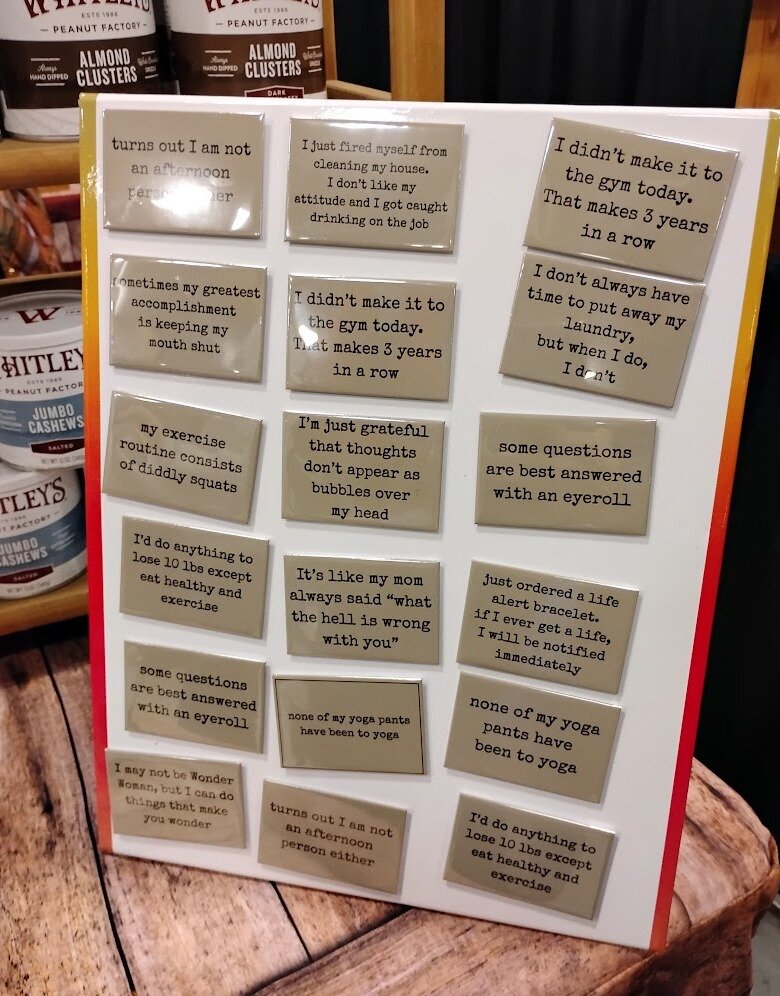 ESTD 1986
PEANUT FACTORY
Always
HAND DIPPED
ALMOND
CLUSTERS
ESTD 1986
PEANUT FACTORY
Always
HAND DIPPED
ALMOND
CLUSTERS
DARK
W
WHITLEY
ESTD 1986
PEANUT FACTOR
JUMBO
CASHEWS
SALTED
TLEYS
FACTORY
JUMBO
CASHEWS
SALTED
turns out I am not
an afternoon
person either
I just fired myself from
cleaning my house.
I don't like my
attitude and I got caught
drinking on the job
I didn't make it to
the gym today.
That makes 3 years
in a row
sometimes my greatest
accomplishment
is keeping my
mouth shut
I didn't make it to
the gym today.
That makes 3 years
in a row
I don't always have
time to put away my
laundry,
but when I do,
I don't
my exercise
routine consists
of diddly squats
I'm just grateful
that thoughts
don't appear as
bubbles over
my head
some questions
are best answered
with an eyeroll
I'd do anything to
lose 10 lbs except
eat healthy and
exercise
It's like my mom
always said "what
the hell is wrong
with you"
just ordered a life
alert bracelet.
if I ever get a life,
I will be notified
immediately
some questions
are best answered
with an eyeroll
none of my yoga pants
have been to yoga
none of my yoga
pants have
been to yoga
I may not be Wonder
Woman, but I can do
things that make
you wonder
turns out I am not
an afternoon
person either
I'd do anything to
lose 10 lbs except
eat healthy and
exercise